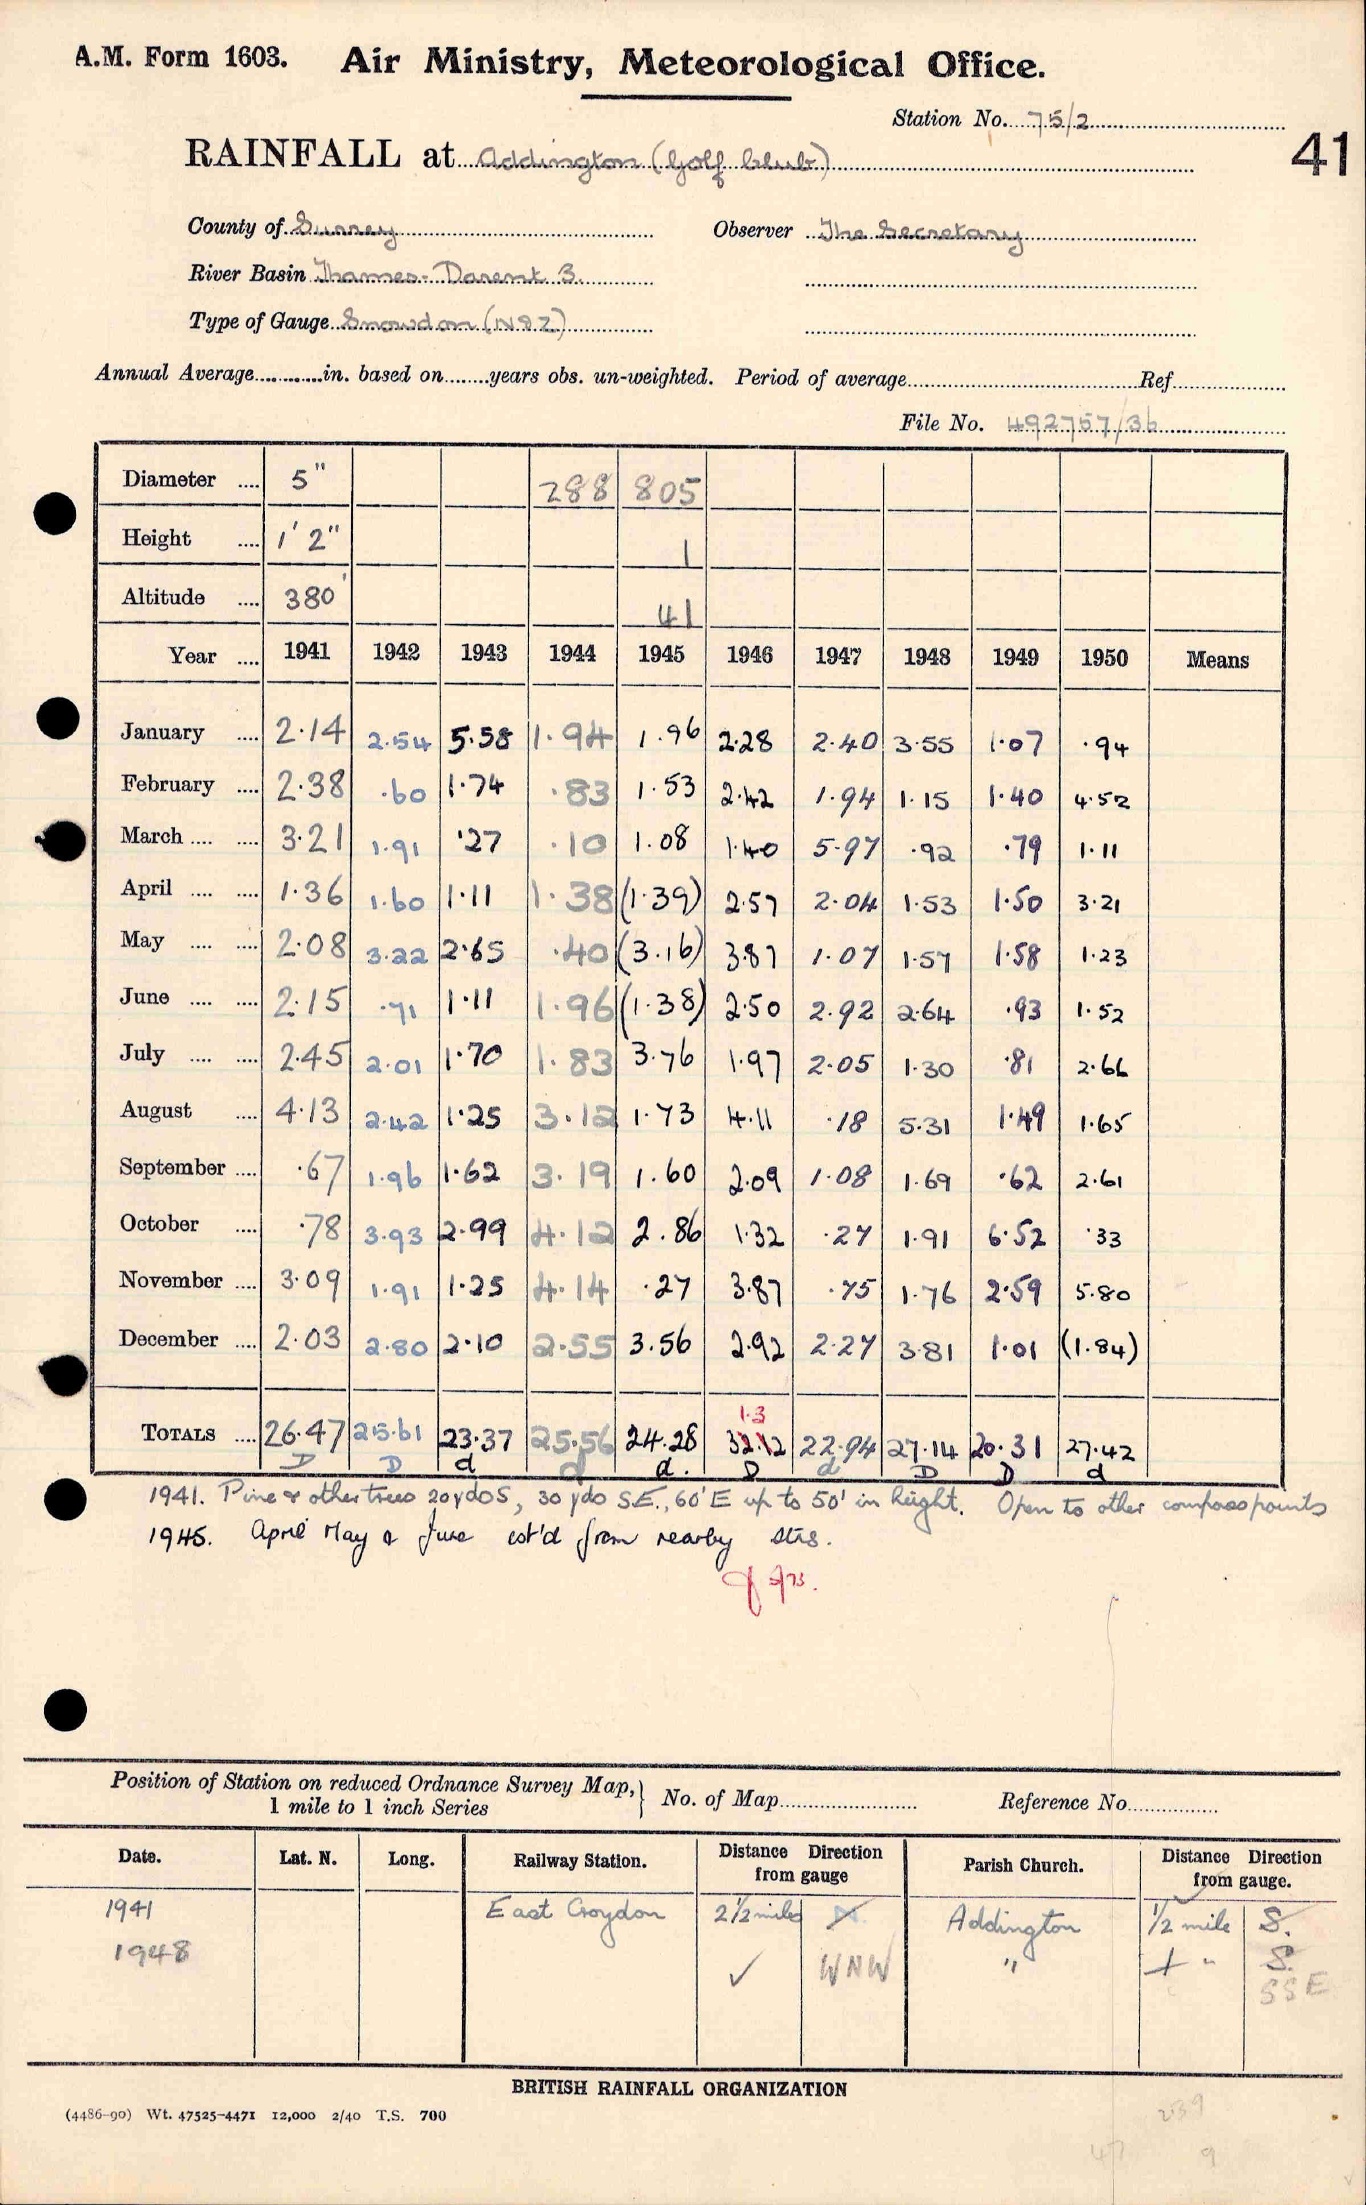 A.M. Form 1603. Air Ministry, Meteorological Office.
Station No. 75/2
41
RAINFALL at Addington (Golf Club)
County of Surrey Observer The Secretary
River Basin Thames-Darent B.
Type of Gauge Snowdon
Annual Average in. based on years obs. un-weighted. Period of average Ref
File No. 492757/36
Diameter 5" 288 805
Height 1' 2" 1
Altitude 380' 41
Year 1941 1942 1943 1944 1945 1946 1947 1948 1949 1950 Means
January 2.14 2.54 5.58 1.94 1.96 2.28 2.40 3.55 1.07 .94
February 2.38 .60 1.74 .83 1.53 2.42 1.94 1.15 1.40 4.52
March 3.21 1.91 .27 .10 1.08 1.40 5.97 .92 .79 1.11
April 1.36 1.60 1.11 1.38 (1.39) 2.57 2.04 1.53 1.50 3.21
May 2.08 3.22 2.65 .40 (3.16) 3.87 1.07 1.57 1.58 1.23
June 2.15 .71 1.11 1.96 (1.38) 2.50 2.92 2.64 .93 1.52
July 2.45 2.01 1.70 1.83 3.76 1.97 2.05 1.30 .81 2.66
August 4.13 2.42 1.25 3.12 1.73 4.11 .18 5.31 1.49 1.65
September .67 1.96 1.62 3.19 1.60 2.09 1.08 1.69 .62 2.61
October .78 3.93 2.99 4.12 2.86 1.32 .27 1.91 6.52 .33
November 3.09 1.91 1.25 4.14 .27 3.87 .75 1.76 2.59 5.80
December 2.03 2.80 2.10 2.55 3.56 2.92 2.27 3.81 1.01 (1.84)
1.3
TOTALS 26.47 25.61 23.37 25.56 24.28 32.12 22.94 27.14 20.31 27.42
D D d d d. D d D D d
1941. Pine & other trees 20 yds S, 30 yds S.E., 60' E up to 50' in height. Open to other compass points
1945. April May & June est'd from nearby stns.
5/73.
Position of Station on reduced Ordnance Survey Map, 1 mile to 1 inch Series No. of Map Reference No.
Date. Lat. N. Long. Railway Station. Distance Direction from gauge Parish Church. Distance Direction from gauge.
1941 East Croydon 2½ miles N. Addington ½ mile S.
1948 ✓ WNW " 1 " S.
SSE
BRITISH RAINFALL ORGANIZATION
(4486-90) Wt. 47525-4471 12,000 2/40 T.S. 700
239
47 9